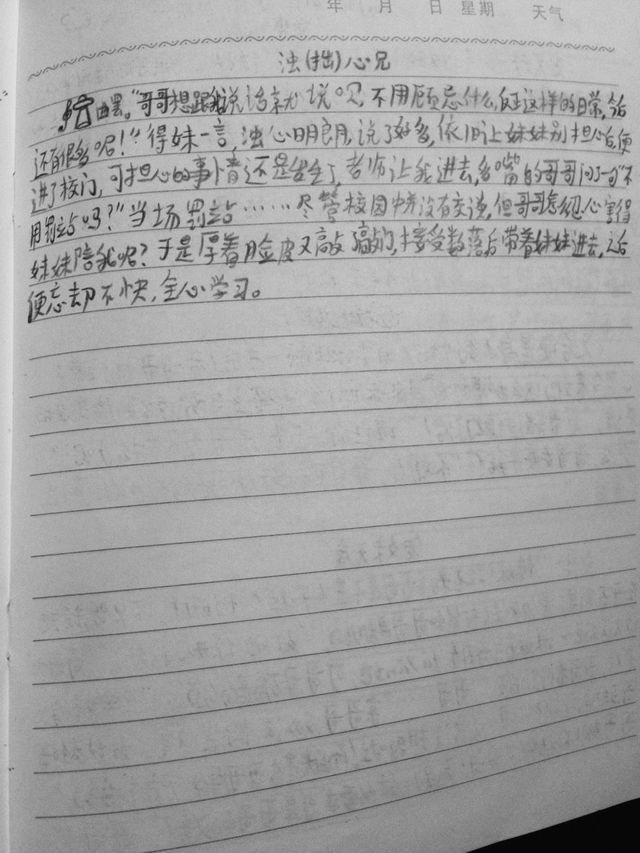 年 月 日 星期 天气
浊(拙)心兄
由罢。"哥哥想跟我说话就说呗,不用顾忌什么,反正这样的日常,今后
还有很多呢!"得妹一言,浊心明朗,说了好多,依旧让妹妹别担心后,便
进了校门,可担心的事情还是发生了,老师让我进去,多嘴的哥哥问了一句"不
用罚站吗?"当场罚站……尽管校园中并没有交谈,但哥哥怎忍心害得
妹妹陪我呢?于是厚着脸皮又敲敲门,接受数落后带着妹妹进去,之后
便忘却不快,全心学习。